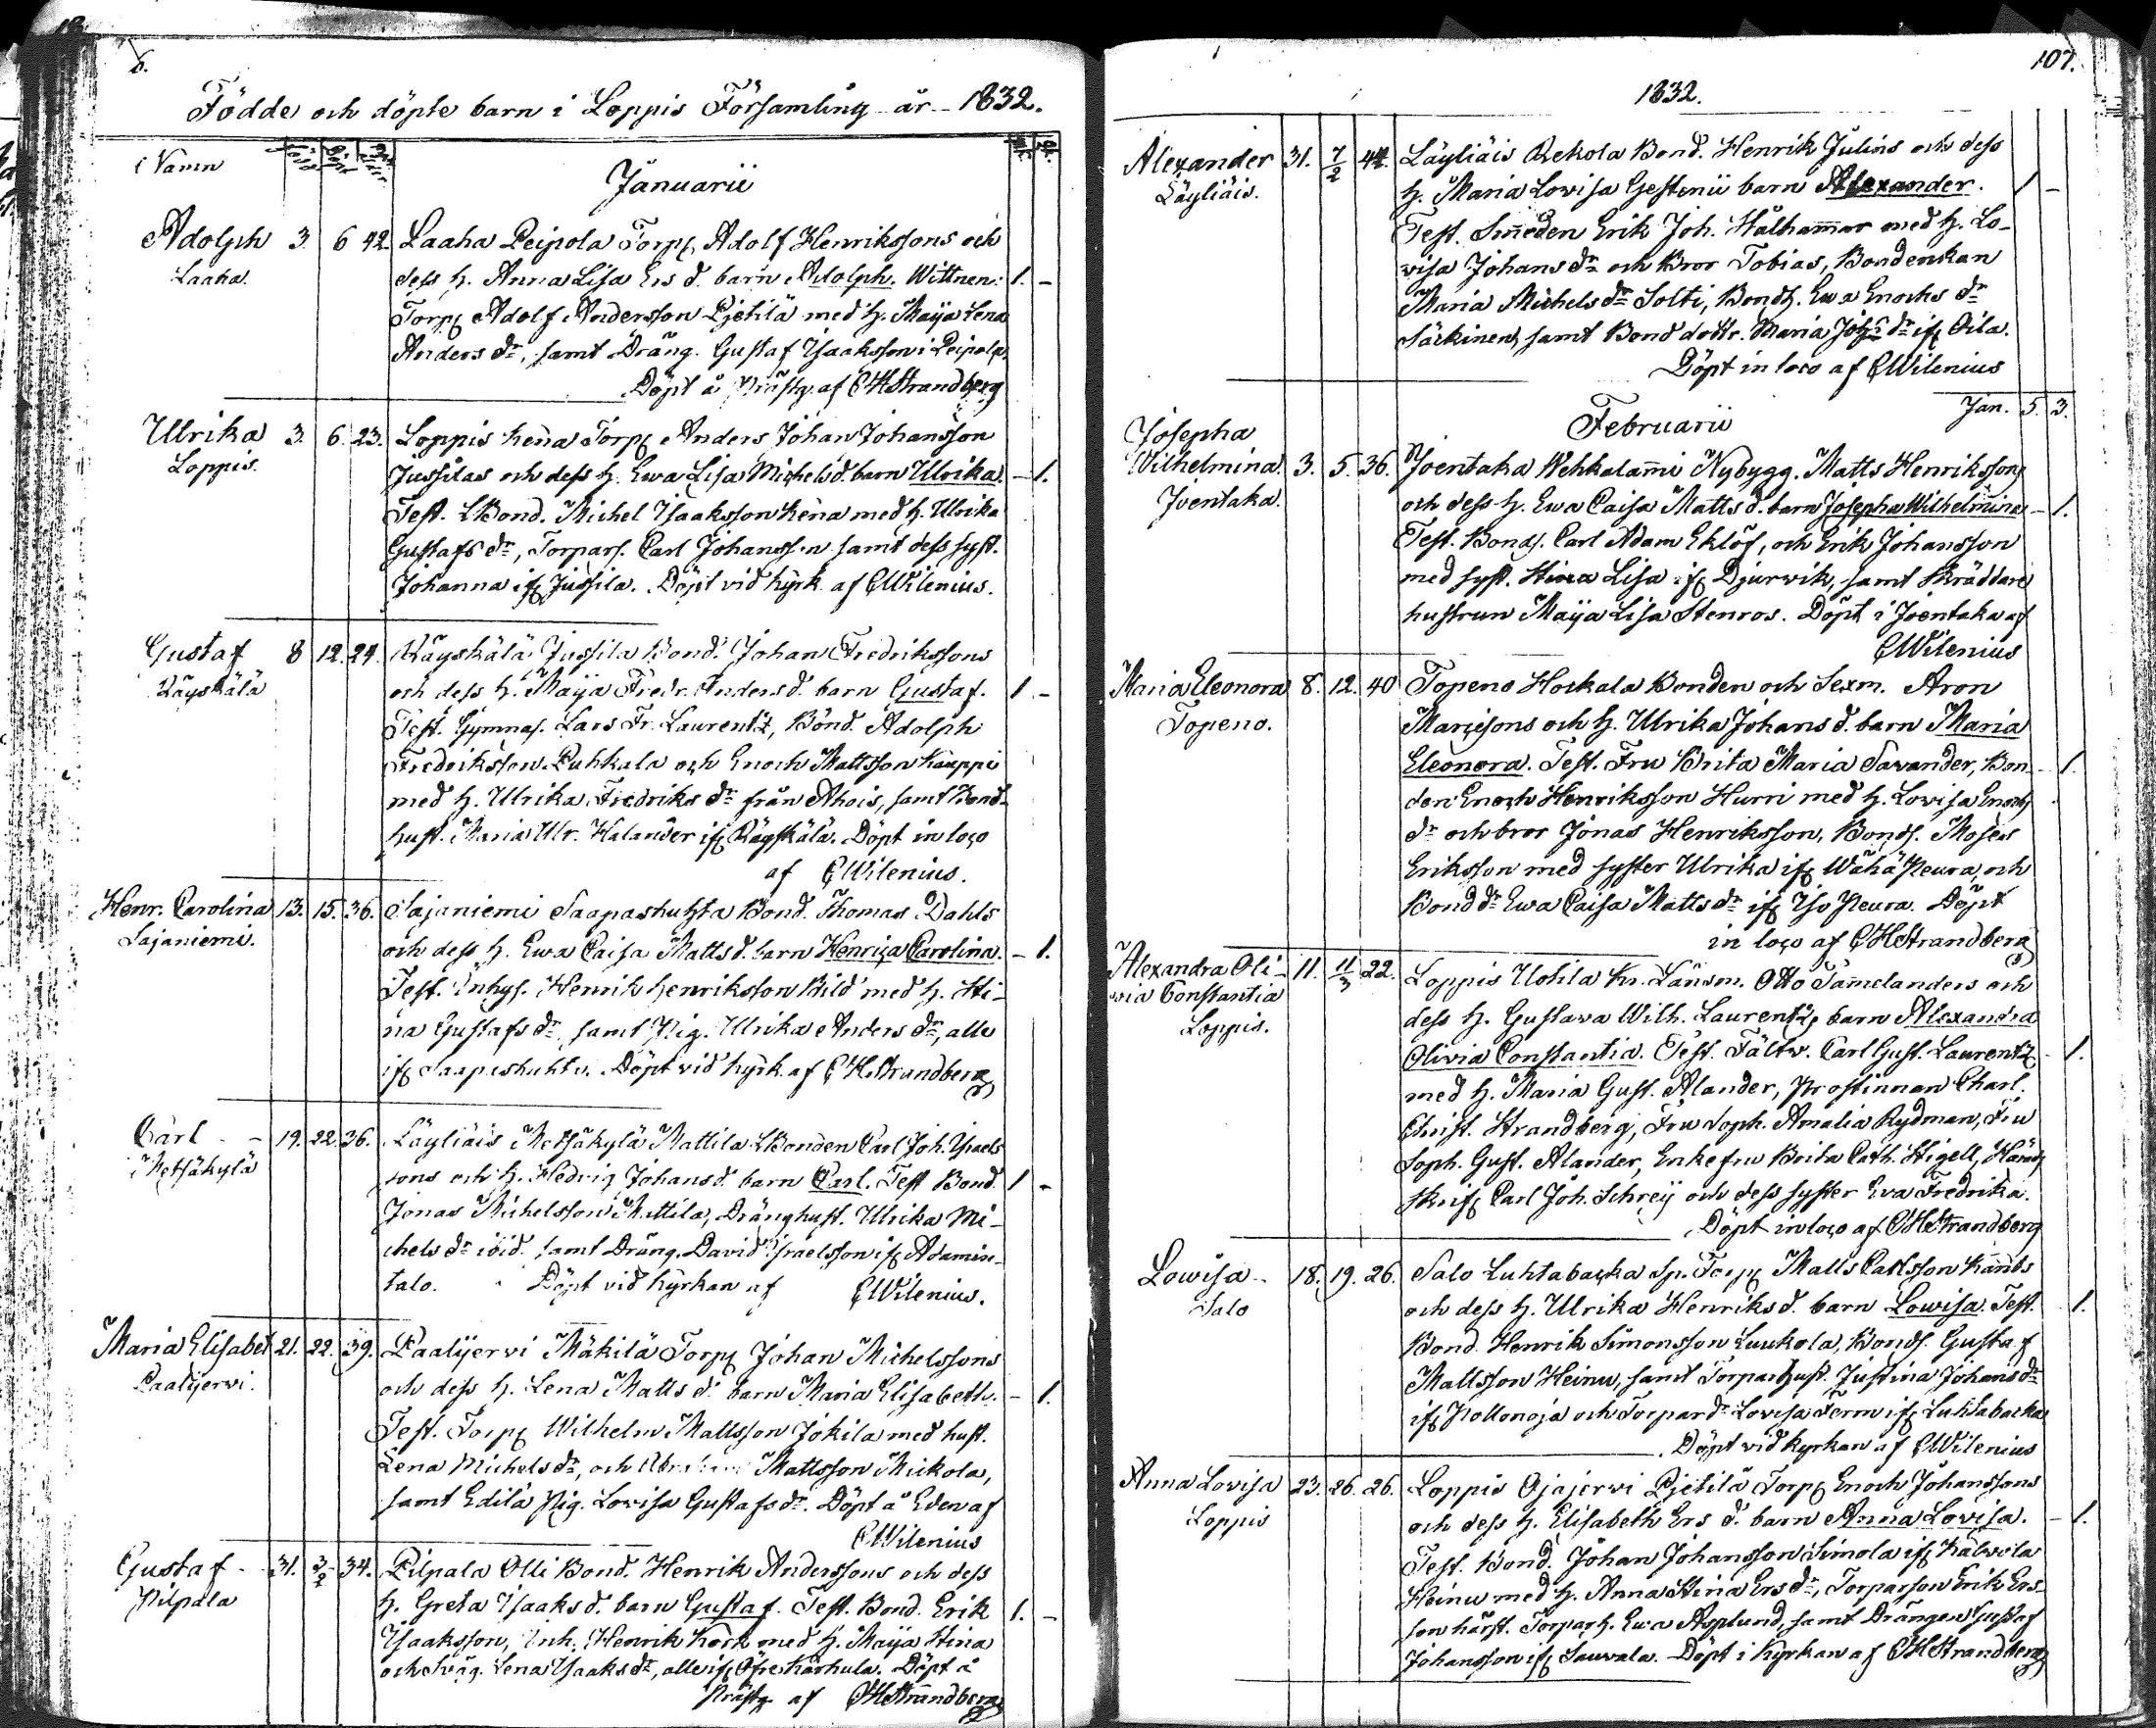 6.
Födde och döpte barn i Loppis Församling år 1832.
Namn
Januarii
Adolph 3. 6 42. Laaha Peipola Torp. Adolf Henrikssons och
Laaha. dess h. Anna Lisa Ers d. barn Adolph. Wittnen: 1. -
Torp. Adolf Andersson Pjetilä med h. Maija Lena
Anders dr, samt Dräng. Gustaf Isaaksson i Peipola.
Döpt å Prästg. af CHStrandberg
Ulrika 3. 6. 23. Loppis Torp. Anders Johan Johansson
Loppis. Jussilas och dess h. Ewa Lisa Michels d. barn Ulrika. - 1.
Test. LBond. Michel Isaaksson med h. Ulrika
Gustafs dr, Torpars. Carl Johansson samt dess syst.
Johanna if. Jussila. Döpt vid kyrk. af CWilenius.
Gustaf 8 12. 24. Räyskälä Jussila Bond. Johan Fredrikssons
Räyskälä och dess h. Maija Fredr. Anders d. barn Gustaf. 1 -
Test. Gymnas. Lars Fr. Laurentz, Bond. Adolph
Fredriksson Puhkala och Enoch Mattsson Kauppi
med h. Ulrika Fredriks dr från Ahois, samt Bond-
hust. Maria Ulr. Halander if. Räyskälä. Döpt in loco
af CWilenius.
Henr. Carolina 13. 15. 36. Sajaniemi Saapashuhta Bond. Thomas Dahls
Sajaniemi. och dess h. Ewa Caisa Matts d. barn Henrica Carolina. - 1.
Test. Inhys. Henrik Henriksson Bild med h. Sti-
na Gustafs dr, samt Pig. Ulrika Anders dr, alle
if. Saapashuhta. Döpt vid kyrk. af CHStrandberg
Carl - 19. 22. 36. Läyliäis Metsäkylä Mattila LBonden Carl Joh. Israels
Metsäkylä sons och h. Hedvig Johans d. barn Carl. Test Bond. 1 -
Jonas Michelsson Mattila, Dränghust. Ulrika Mi-
chels dr ibid. samt Dräng. David Israelsson if. Adamin-
talo. Döpt vid kyrkan af CWilenius.
Maria Elisabet 21. 22. 39. Paalijervi Mäkilä Torp. Johan Michelssons
Paalijervi. och dess h. Lena Matts d. barn Maria Elisabeth. - 1.
Test. Torp. Wilhelm Mattsson Jokila med hust.
Lena Michels dr, och Mattsson Mickola,
samt Edilä Pig. Lovisa Gustafs dr. Döpt å Eden af
CWilenius
Gustaf 31. 3/2 34. Pilpala Olli Bond. Henrik Anderssons och dess
Pilpala h. Greta Isaaks d. barn Gustaf. Test. Bond. Erik 1. -
Isaaksson, Inh. Henrik Kock med h. Maija Stina
och Svåg. Lena Isaaks dr, alle if. Öfre Karhula. Döpt å
Prästg. af CHStrandberg
107.
1832.
Alexander 31. 7/2 44. Läyliäis Rekola Bond. Henrik Julins och dess
Läyliäis. h. Maria Lovisa Gestenii barn Alexander. 1 -
Test. Smeden Erik Joh. Stålhammar med h. Lo-
visa Johans dr och Bror Tobias, Bondenkan
Maria Michels dr Solti, Bondh. Ewa Enochs dr
Säckinen, samt Bond dottr. Maria Johs dr if. Oila.
Döpt in loco af CWilenius
Jan. 5. 3.
Februarii
Josepha
Wilhelmina. 3. 5. 36. Joentaka Wehkalammi Nybygg. Matts Henrikssons
Joentaka. och dess h. Ewa Caisa Matts d. barn Josepha Wilhelmina - 1.
Test. Bonds. Carl Adam Eklöf, och Erik Johansson
med syst. Stina Lisa if. Djurwik, samt Skräddare
hustrun Maija Lisa Stenros. Döpt i Joentaka af
CWilenius
Maria Eleonora 8. 12. 40 Topeno Hockala Bonden och Sexm. Aron
Topeno. Marcisons och h. Ulrika Johans d. barn Maria
Eleonora. Test. Fru Brita Maria Savander, Bon- - 1.
den Enoch Henriksson Hurri med h. Lovisa Enochs
dr och bror Jonas Henriksson, Bonds. Moses
Eriksson med syster Ulrika if. Wähä Peura, och
Bond dr Ewa Caisa Matts dr if. Iso Peura. Döpt
in loco af CHStrandberg
Alexandra Oli- 11. 11/3 22. Loppis Uotila Kr. Länsm. Otto Tamelanders och
via Constantia dess h. Gustava Wilh. Laurentz barn Alexandra
Loppis. Olivia Constantia. Test. Fältw. Carl Gust. Laurentz - 1.
med h. Maria Gust. Alander, Prostinnan Charl.
Christ. Strandberg, Fru Soph. Amalia Rydman, Fru
Soph. Gust. Alander, Enkefru Brita Cath. Stigell, Härads
skrif. Carl Joh. Schreij och dess syster Eva Fredrika.
Döpt in loco af CHStrandberg
Lowisa 18. 19. 26. Salo Luhtabacka Sp. Torp. Matts Carlsson
Salo och dess h. Ulrika Henriks d. barn Lowisa. Test. 1.
Bond. Henrik Simonsson Luukola, Bonds. Gustaf
Mattsson Heinu, samt Torparhust. Justina Johans dr
if. Pollonoja och Torpar dr Lovisa Ferm if. Luhtabacka
Döpt vid kyrkan af CWilenius
Anna Lovisa 23. 26. 26. Loppis Ojajervi Pjetilä Torp. Enoch Johanssons
Loppis och dess h. Elisabeth Ers d. barn Anna Lovisa. - 1.
Test. Bond. Johan Johansson Simola if. Kalvola
Heinu med h. Anna Stina Ers dr, Torparson Erik Ers-
son härst. Torparh. Ewa Asplund, samt Drängen Gustaf
Johansson if. Sauvala. Döpt i Kyrkan af CHStrandberg